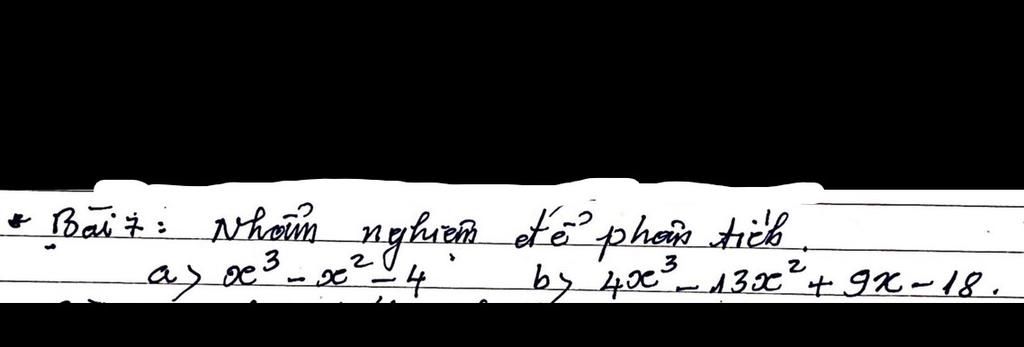 * Bài 7: Nhẩm nghiệm để phân tích.
a> x³ - x² - 4 b> 4x³ - 13x² + 9x - 18.